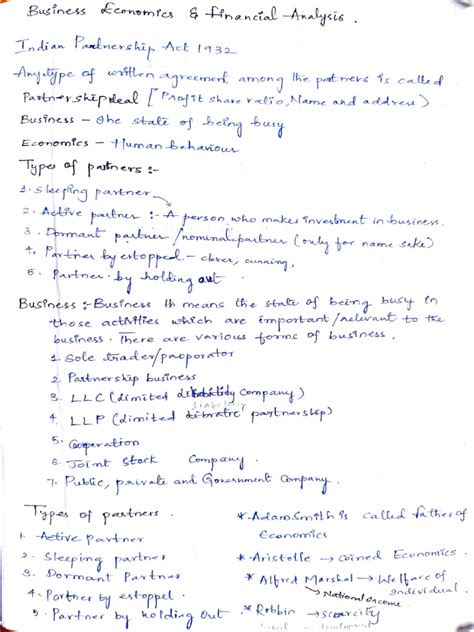 Business Economics & Financial Analysis.
Indian Partnership Act 1932
Any type of written agreement among the partners is called
Partnership deal [Profit share ratio, Name and address)
Business - The state of being busy
Economics - Human behaviour
Types of partners :-
1. Sleeping partner
2. Active partner :- A person who makes investment in business.
3. Dormant partner /nominal partner (only for name sake)
4. Partner by estopped - clever, cunning.
5. Partner by holding out
Business :- Business It means the state of being busy in
those activities which are important/relevant to the
business. There are various forms of business.
1. Sole trader/proporator
2. Partnership business
3. LLC (Limited liability Company)
4. LLP (Limited partnership)
liability
5. Coperation
6. Joint Stock Company.
7. Public, private and Government Company.
Types of partners.
1. Active Partner
2. Sleeping partner
3. Dormant Partner
4. Partner by estoppel.
5. Partner by holding out
* Adam Smith is called father of
Economics
* Aristolle → coined Economics.
* Alfred Marshal → Welfare of
individual.
→ National Income
* Robbin → scarcity
development